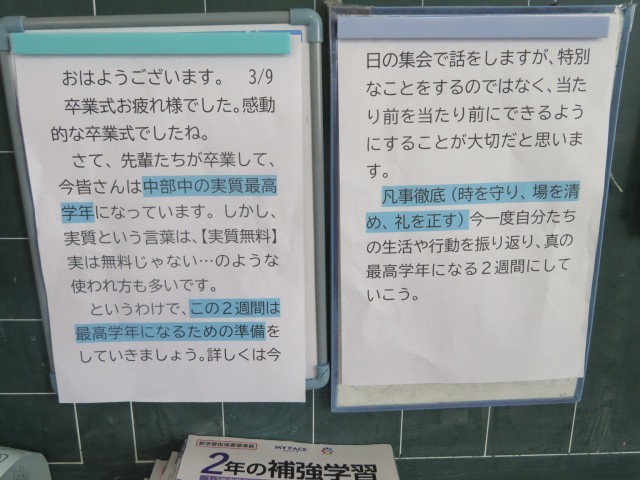 おはようございます。 3/9
卒業式お疲れ様でした。感動
的な卒業式でしたね。
さて、先輩たちが卒業して、
今皆さんは中部中の実質最高
学年になっています。しかし、
実質という言葉は、【実質無料】
実は無料じゃない…のような
使われ方も多いです。
というわけで、この２週間は
最高学年になるための準備を
していきましょう。詳しくは今
日の集会で話をしますが、特別
なことをするのではなく、当た
り前を当たり前にできるよう
にすることが大切だと思いま
す。
凡事徹底（時を守り、場を清
め、礼を正す）今一度自分たち
の生活や行動を振り返り、真の
最高学年になる２週間にして
いこう。
MY PACE
2年の補強学習